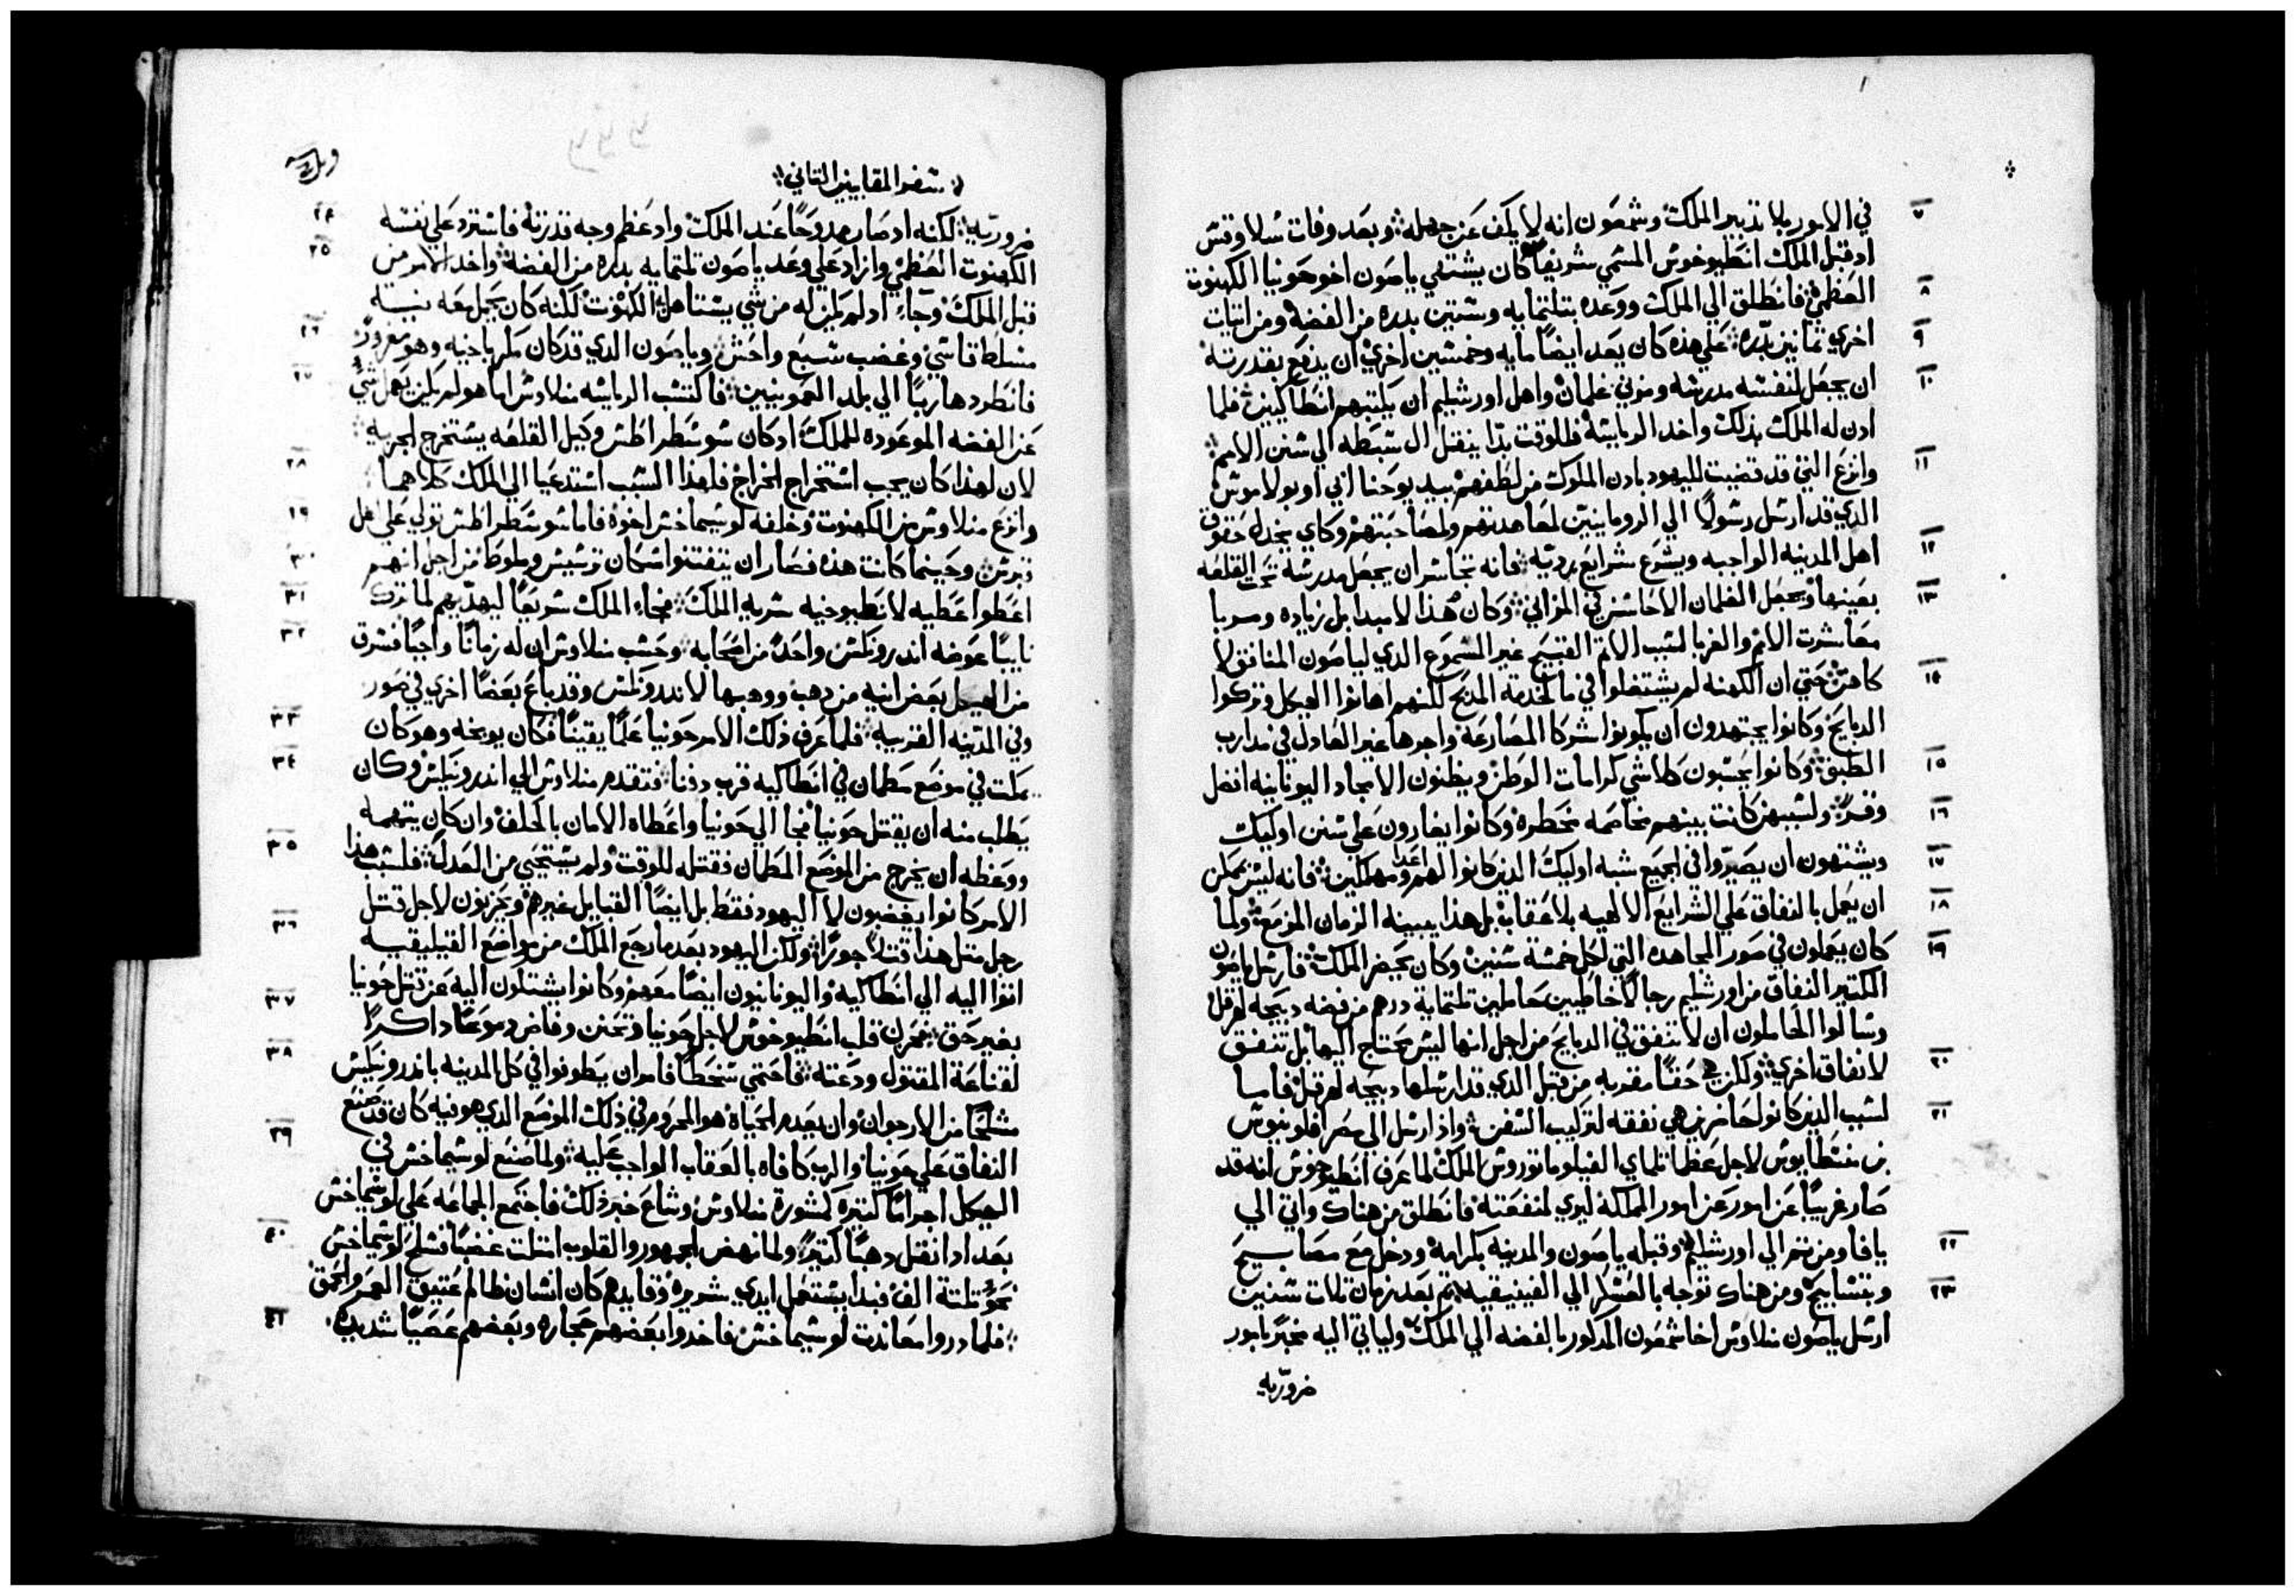 ٧ في الامور بلا تدبير الملك وشمعون انه لا يكف عن جهله وبعد وفات سلاوقس
اد قبل الملك انطيوخوش المسمي شريفا كان يشتهي ياصون اخو حونيا الكهنوت
٨ العظمي فانطلق الي الملك ووعده بتلتمايه وستين بدره من الفضه ومن اتيات
٩ اخري تمانين بدره علي هذه كان يعد ايضا مايه وخمسين اخري ان يدفع بقدرته
١٠ ان يجعل لنفسه مدرسه ومزني غلمان واهل اورشليم ان يكتبهم انطاكيين فلما
ادن له الملك بذلك واخد الرياسه فللوقت بدا ينقل ال سبطه الي سنن الامم
١١ وانزع التي قد قضيت لليهود بادن الملوك من لطفهم بيد يوحنا ابي اوبولاموس
الدي قد ارسل رسولا الي الرومانيين لمعاهدتهم ولمصاحبتهم وكاي يجدل حقوق
١٢ اهل المدينه الواجبه ويشرع شرايع رديه فانه تجاسر ان يجعل مدرسة تحت القلعه
١٣ بعينها ويجعل الغلمان الاحاسن في المزاني وكان هذا لا مبدا بل زياده وسربا
معاشرت الامم والغربا لسبب الاتم القبيح غير المسموع الدي لياصون المنافق لا
١٤ كاهن حتي ان الكهنه لم يشتغلوا في ما لخدمة المدبح لكنهم اهانوا الهيكل وتركوا
الدبايح وكانوا يجتهدون ان يكونوا شركا المصارعه واجرها غير العادل في تدارب
١٥ الطبق وكانوا يحسبون كلاشي كرامات الوطن ويظنون الامجاد اليونانيه افضل
١٦ وقر ولسببهن كانت بينهم مخاصمه مخطره وكانوا يغارون علي سنن اوليك
١٧ ويشتهون ان يصيروا في الجميع شبه اوليك الدين كانوا لهم اعدا ومهلكين فانه ليس يمكن
١٨ ان يعمل بالنفاق علي الشرايع الالهيه بلا عقاب بل هذا يبينه الزمان المزمع ولما
١٩ كان يعملون في صور المجاهده التي لكل خمسة سنين وكان يحضر الملك فارسل ياصون
الكتير النفاق من اورشليم رجالا خاطيين حاملين تلتماية درهم من فضه دبيحه لهرقل
وسالوا الحاملون ان لا تنفق في الدبايح من اجل انها ليس يحتاج اليها بل تنفق
٢٠ لانفاق اخري ولكن هي حقا مقدبه من قبل الدي قد ارسلها دبيحه لهرقل فاما
٢١ لسبب الدين كانوا حاضرين هي نفقه لتركيب السفن واذ ارسل الي مصر افلونيوس
بن منسطاوس لاجل عظما تلماي الفيلوماتوروس الملك لما عرف انطيوخوش انه قد
صار غريبا عن امور عن امور المملكه ليري لمنفعته فانطلق من هناك واتي الي
٢٢ يافا ومن تم الي اورشليم وقبله ياصون والمدينه بكرامه ودخل مع مصابيح
٢٣ وبتسابيح ومن هناك توجه بالعسكر الي الفينيقيه تم بعد زمان تلات سنين
ارسل ياصون منلاوس اخا شمعون المدكور بالفضه الي الملك ولياتي اليه مخبرا بامور
ضروريه
سفر المقابيين التاني
٢٤ ضروريه لكنه اد صار ممدوحا عند الملك واد عظم وجه قدرته فاسترد علي نفسه
٢٥ الكهنوت العظمي وازاد علي وعد ياصون تلتمايه بدره من الفضه واخد الامر من
قبل الملك وجاء اد لم يكن له من شي يستاهل الكهنوت لكنه كان يحمل معه نيــة
٢٦ متسلط قاسي وغضب سبع واحش وياصون الدي قد كان مكر باخيه وهو مغرور
٢٧ فانطرد هاربا الي بلد العمونيين فاكتسب الرياسه منلاوس اما هو لم يكن يعمل شي
عن الفضه الموعوده للملك اد كان سوسطراطس وكيل القلعه يستخرج الجزيه
٢٨ لان لهذا كان يجب استخراج الخراج فلهذا السبب استدعيا الي الملك كلاهما
٢٩ وانزع منلاوس من الكهنوت وخلفه لوسيماخس اخوه فاما سوسطراطس تولي علي اهل
٣٠ قبرس وحينما كانت هذه فصار ان يتفتنوا سكان ترسيس وملوط من اجل انهم
٣١ اعطوا عطيه لانطيوخيه سرية الملك فجاء الملك سريعا ليهديهم لما ترك
٣٢ نايبا عوضه اندرونكس واحدا من اصحابه وحسب منلاوس ان له زمانا واجبا فسرق
من الهيكل بعض انيه من دهب ووهبها لاندرونكس وقد باع بعضا اخري في صور
٣٣ وفي المدينه القريبه فلما عرف ذلك الامر حونيا علما يقينا فكان يوبخه وهو كان
٣٤ يمكت في موضع مطمان في انطاكيه قرب دفنا فتقدم منلاوس الي اندرونيكس وكان
يطلب منه ان يقتل حونيا فجا الي حونيا واعطاه الامان بالحلف وان كان يتهمه
٣٥ ووعظه ان يخرج من الموضع المطمان فقتله للوقت ولم يستحيي من العدل فلسبب هذا
الامر كانوا يغضبون لا اليهود فقط بل ايضا القبايل غيرهم ويحزنون لاجل قتل
٣٦ رجل متل هذا قتلا جورا ولكن اليهود بعد ما رجع الملك من مواضع القيليقيه
اتوا اليه الي انطاكيه واليونانيون ايضا معهم وكانوا يشتكون اليه عن قتل حونيا
٣٧ بغير حق فحزن قلب انطيوخوش لاجل حونيا وتحنن وفاض دموعا داكرا
٣٨ لقناعة المقتول ودعته فاحتمي سخطا فامر ان يطوفوا في كل المدينه باندرونيكس
مشلحا من الارجوان وان يعدم الحياة هو المحروم في ذلك الموضع الدي هو فيه كان قد صنع
٣٩ النفاق علي حونيا والرب كافاه بالعقاب الواجب عليه ولما صنع لوسيماخس في
الهيكل اجراما كتيره كمشورة منلاوس وشاع خبر ذلك فاجتمع الجماعه علي لوسيماخس
٤٠ بعد اد انقل دهبا كتيرا ولما نهض الجمهور والقلوب امتلت غضبا فسلح لوسيماخس
نحو تلتة الف فبدا يستعمل ايدي شريره وقايدهم كان انسان ظالم عتيق العمر والحمق
٤١ فلما دروا معاندت لوسيماخس فاخدوا بعضهم حجاره وبعضهم عصيا شديده